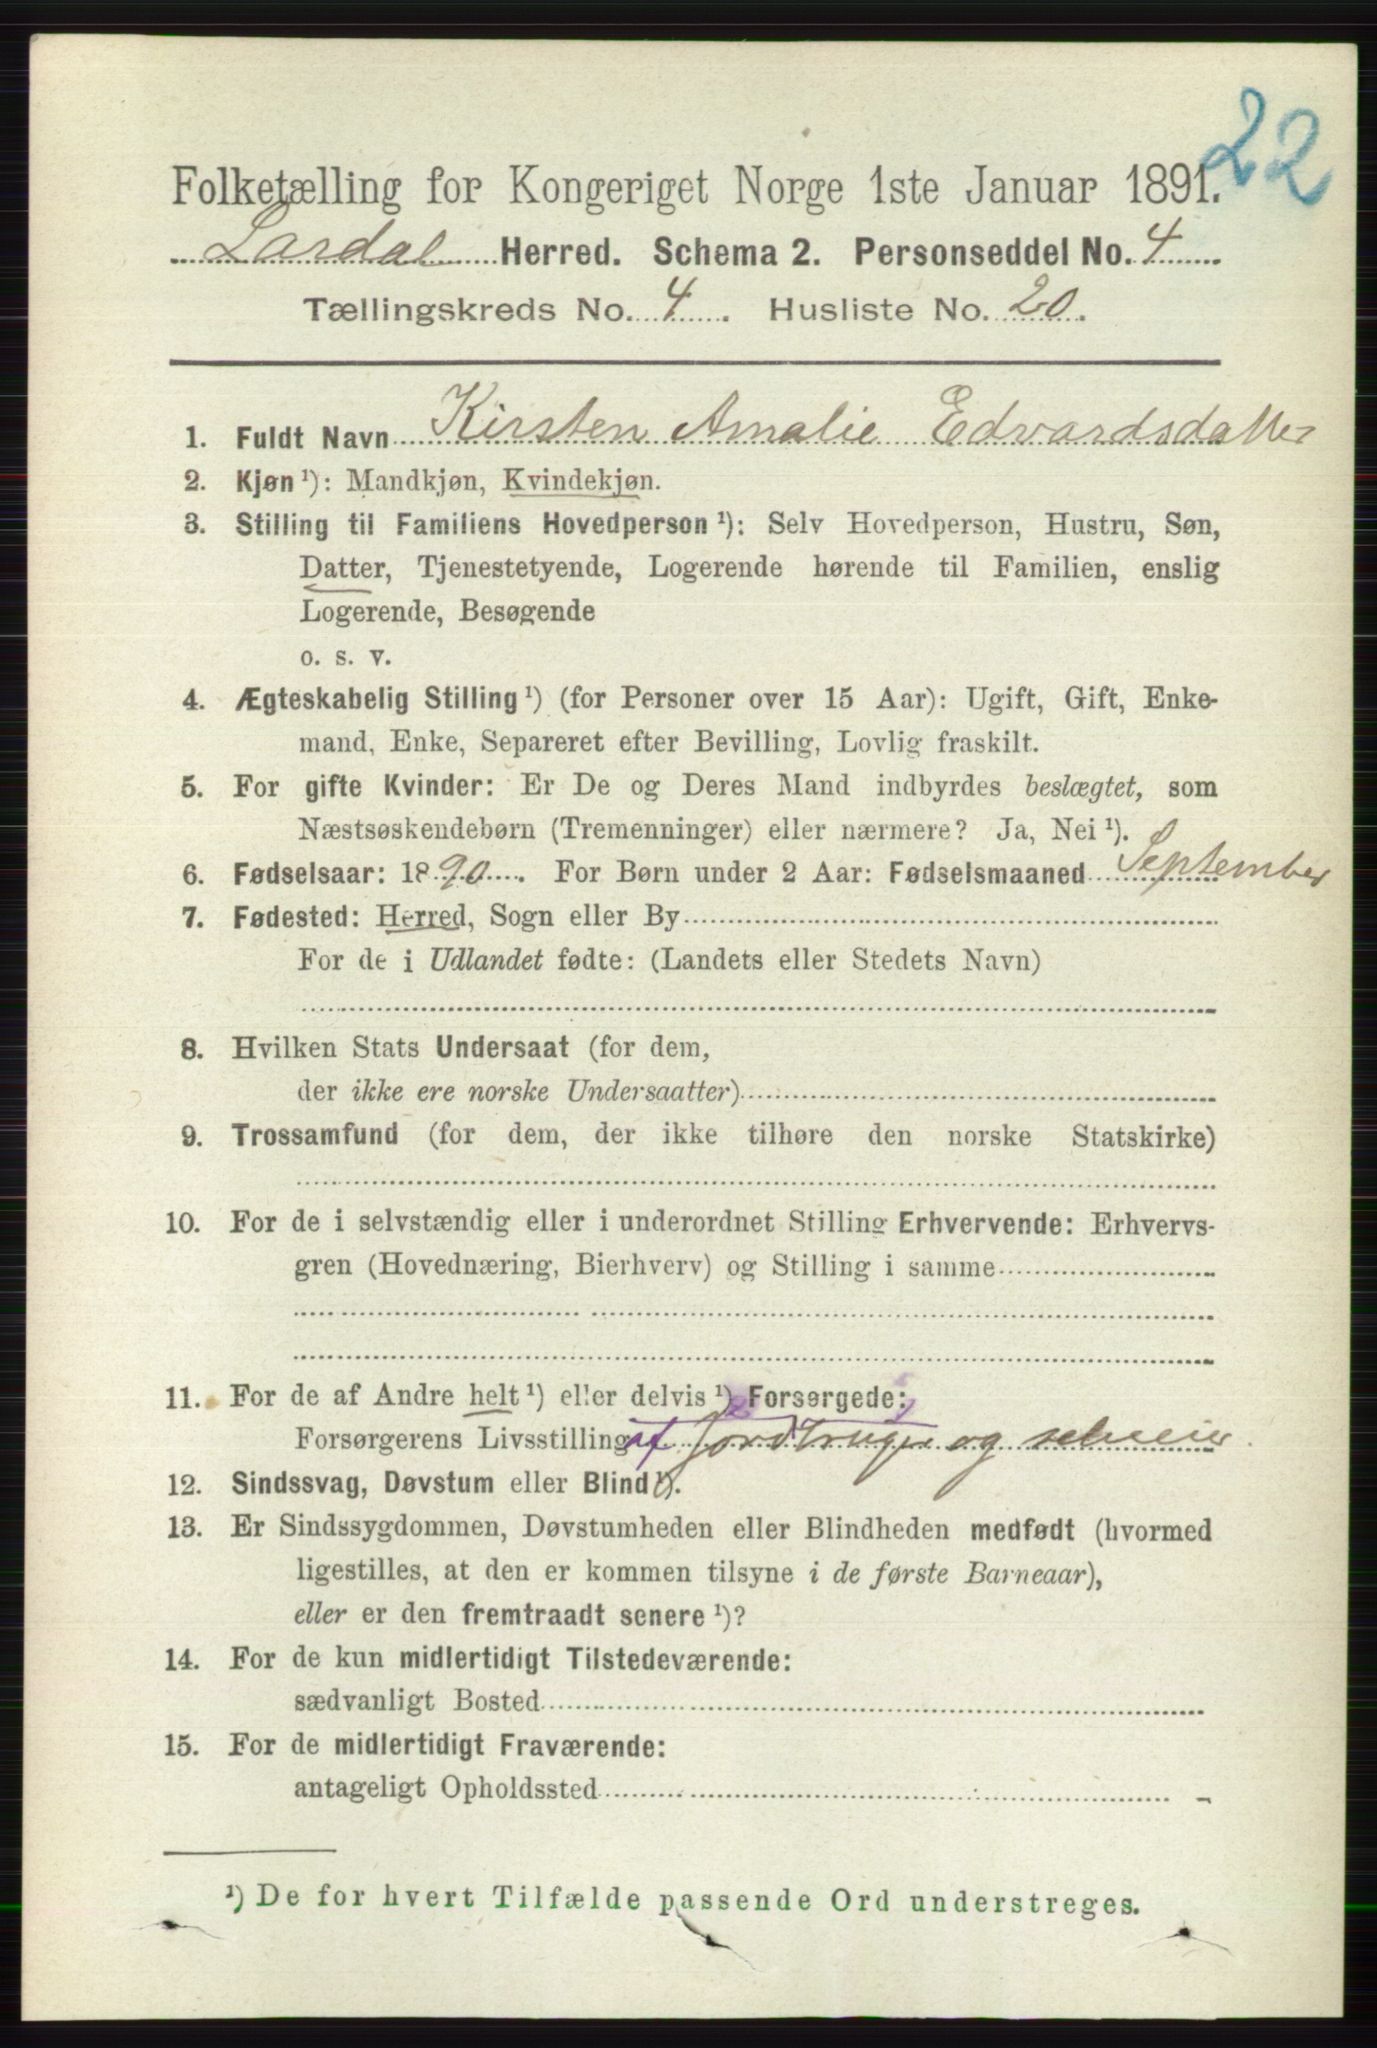 22
Folketælling for Kongeriget Norge 1ste Januar 1891.
Lardal Herred. Schema 2. Personseddel No. 4
Tællingskreds No. 4. Husliste No. 20.
1. Fuldt Navn Kirsten Amalie Edvardsdatter
2. Kjøn ¹): Mandkjøn, Kvindekjøn.
3. Stilling til Familiens Hovedperson ¹): Selv Hovedperson, Hustru, Søn,
Datter, Tjenestetyende, Logerende hørende til Familien, enslig
Logerende, Besøgende
o. s. v.
4. Ægteskabelig Stilling ¹) (for Personer over 15 Aar): Ugift, Gift, Enke-
mand, Enke, Separeret efter Bevilling, Lovlig fraskilt.
5. For gifte Kvinder: Er De og Deres Mand indbyrdes beslægtet, som
Næstsøskendebørn (Tremenninger) eller nærmere? Ja, Nei ¹).
6. Fødselsaar: 1890. For Børn under 2 Aar: Fødselsmaaned September
7. Fødested: Herred, Sogn eller By
For de i Udlandet fødte: (Landets eller Stedets Navn)
8. Hvilken Stats Undersaat (for dem,
der ikke ere norske Undersaatter)
9. Trossamfund (for dem, der ikke tilhøre den norske Statskirke)
10. For de i selvstændig eller i underordnet Stilling Erhvervende: Erhvervs-
gren (Hovednæring, Bierhverv) og Stilling i samme
11. For de af Andre helt ¹) eller delvis ¹) Forsørgede:
Forsørgerens Livsstilling af Jordbruger og selveier
12. Sindssvag, Døvstum eller Blind ¹).
13. Er Sindssygdommen, Døvstumheden eller Blindheden medfødt (hvormed
ligestilles, at den er kommen tilsyne i de første Barneaar),
eller er den fremtraadt senere ¹)?
14. For de kun midlertidigt Tilstedeværende:
sædvanligt Bosted
15. For de midlertidigt Fraværende:
antageligt Opholdssted
¹) De for hvert Tilfælde passende Ord understreges.